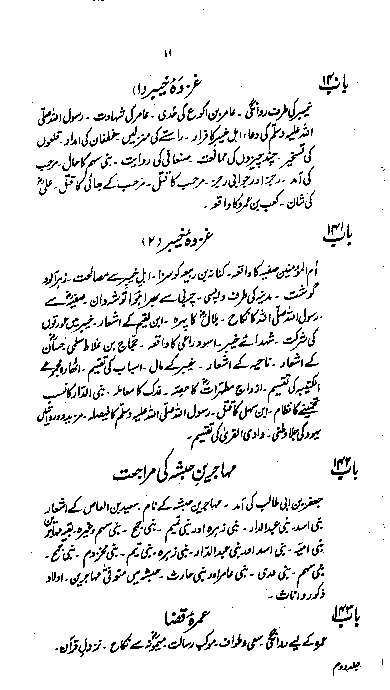 ۱۱
باب ۱۴۰ غزوۂ خیبر (۱)
خیبر کی طرف روانگی ۔ عامر بن اکوع کی حُدی ۔ عامر کی شہادت ۔ رسول اللہ صلی
اللہ علیہ وسلم کی دعا، اہل خیبر کا فرار ۔ راستے کی منزلیں غطفان کی امداد ۔ قلعوں
کی تسخیر ۔ چند چیزوں کی ممانعت ۔ صنعانی کی روایت ۔ بنی سہم کا حال ۔ مرحب
کی آمد ۔ رجز اور جوابی رجز ۔ مرحب کا قتل ۔ مرحب کے بھائی کا قتل ۔ علیؓ
کی شان ۔ کعب بن عمرو کا واقعہ ۔
باب ۱۴۱ غزوۂ خیبر (۲)
اُم المؤمنین صفیہ کا واقعہ ۔ کنانہ بن ربیع کو سزا ۔ اہل خیبر سے مصالحت ۔ زہر آلود
گوشت ۔ مدینہ کی طرف واپسی ۔ چربی سے بھرا ہوا توشہ دان ۔ صفیہؓ سے
رسول اللہ صلی اللہ کا نکاح ۔ بلالؓ کا پہرہ ۔ ابن لقیم کے اشعار ۔ خیبر میں عورتوں
کی شرکت ۔ شہدائے خیبر ۔ اسود راعی کا واقعہ ۔ حجاج بن علاط سلمی حسان
کے اشعار ۔ ناجیہ کے اشعار ۔ خیبر کے مال ۔ اسباب کی تقسیم ۔
الکتیبہ کی تقسیم ۔ ازواج مطہراتؓ کا حصہ ۔ فدک کا معاملہ ۔ بنی الدار کا نسب
تخمینے کا نظام ۔ ابن سہل کا قتل ۔ رسول اللہ صلی اللہ علیہ وسلم کا فیصلہ ۔ مزید
یہود کی جلا وطنی ۔ وادی القریٰ کی تقسیم ۔
باب ۱۴۲ مہاجرین حبشہ کی مراجعت
جعفر بن ابی طالب کی آمد ۔ مہاجرین حبشہ کے نام ۔ سعید بن العاص کے اشعار
بنی اسد ۔ بنی عبدالدار ۔ بنی زہرہ اور بنی تیم ۔ بنی جمح ۔ بنی سہم وغیرہ ۔ بقیہ مہاجرین
بنی امیہ ۔ بنی اسد اور بنی عبد الدار ۔ بنی زہرہ ۔ بنی تیم ۔ بنی مخزوم ۔ بنی جمح ۔
بنی سہم ۔ بنی عدی ۔ بنی عامر اور بنی حارث ۔ حبشہ میں متوفی مہاجرین ۔ اولاد
ذکور و اناث ۔
باب ۱۴۳ عمرۂ قضا
عمرہ کے لیے روانگی ۔ سعی و طواف ۔ موکب رسالت ۔ میمونہؓ سے نکاح ۔ نزولِ قرآن ۔
جلد دوم